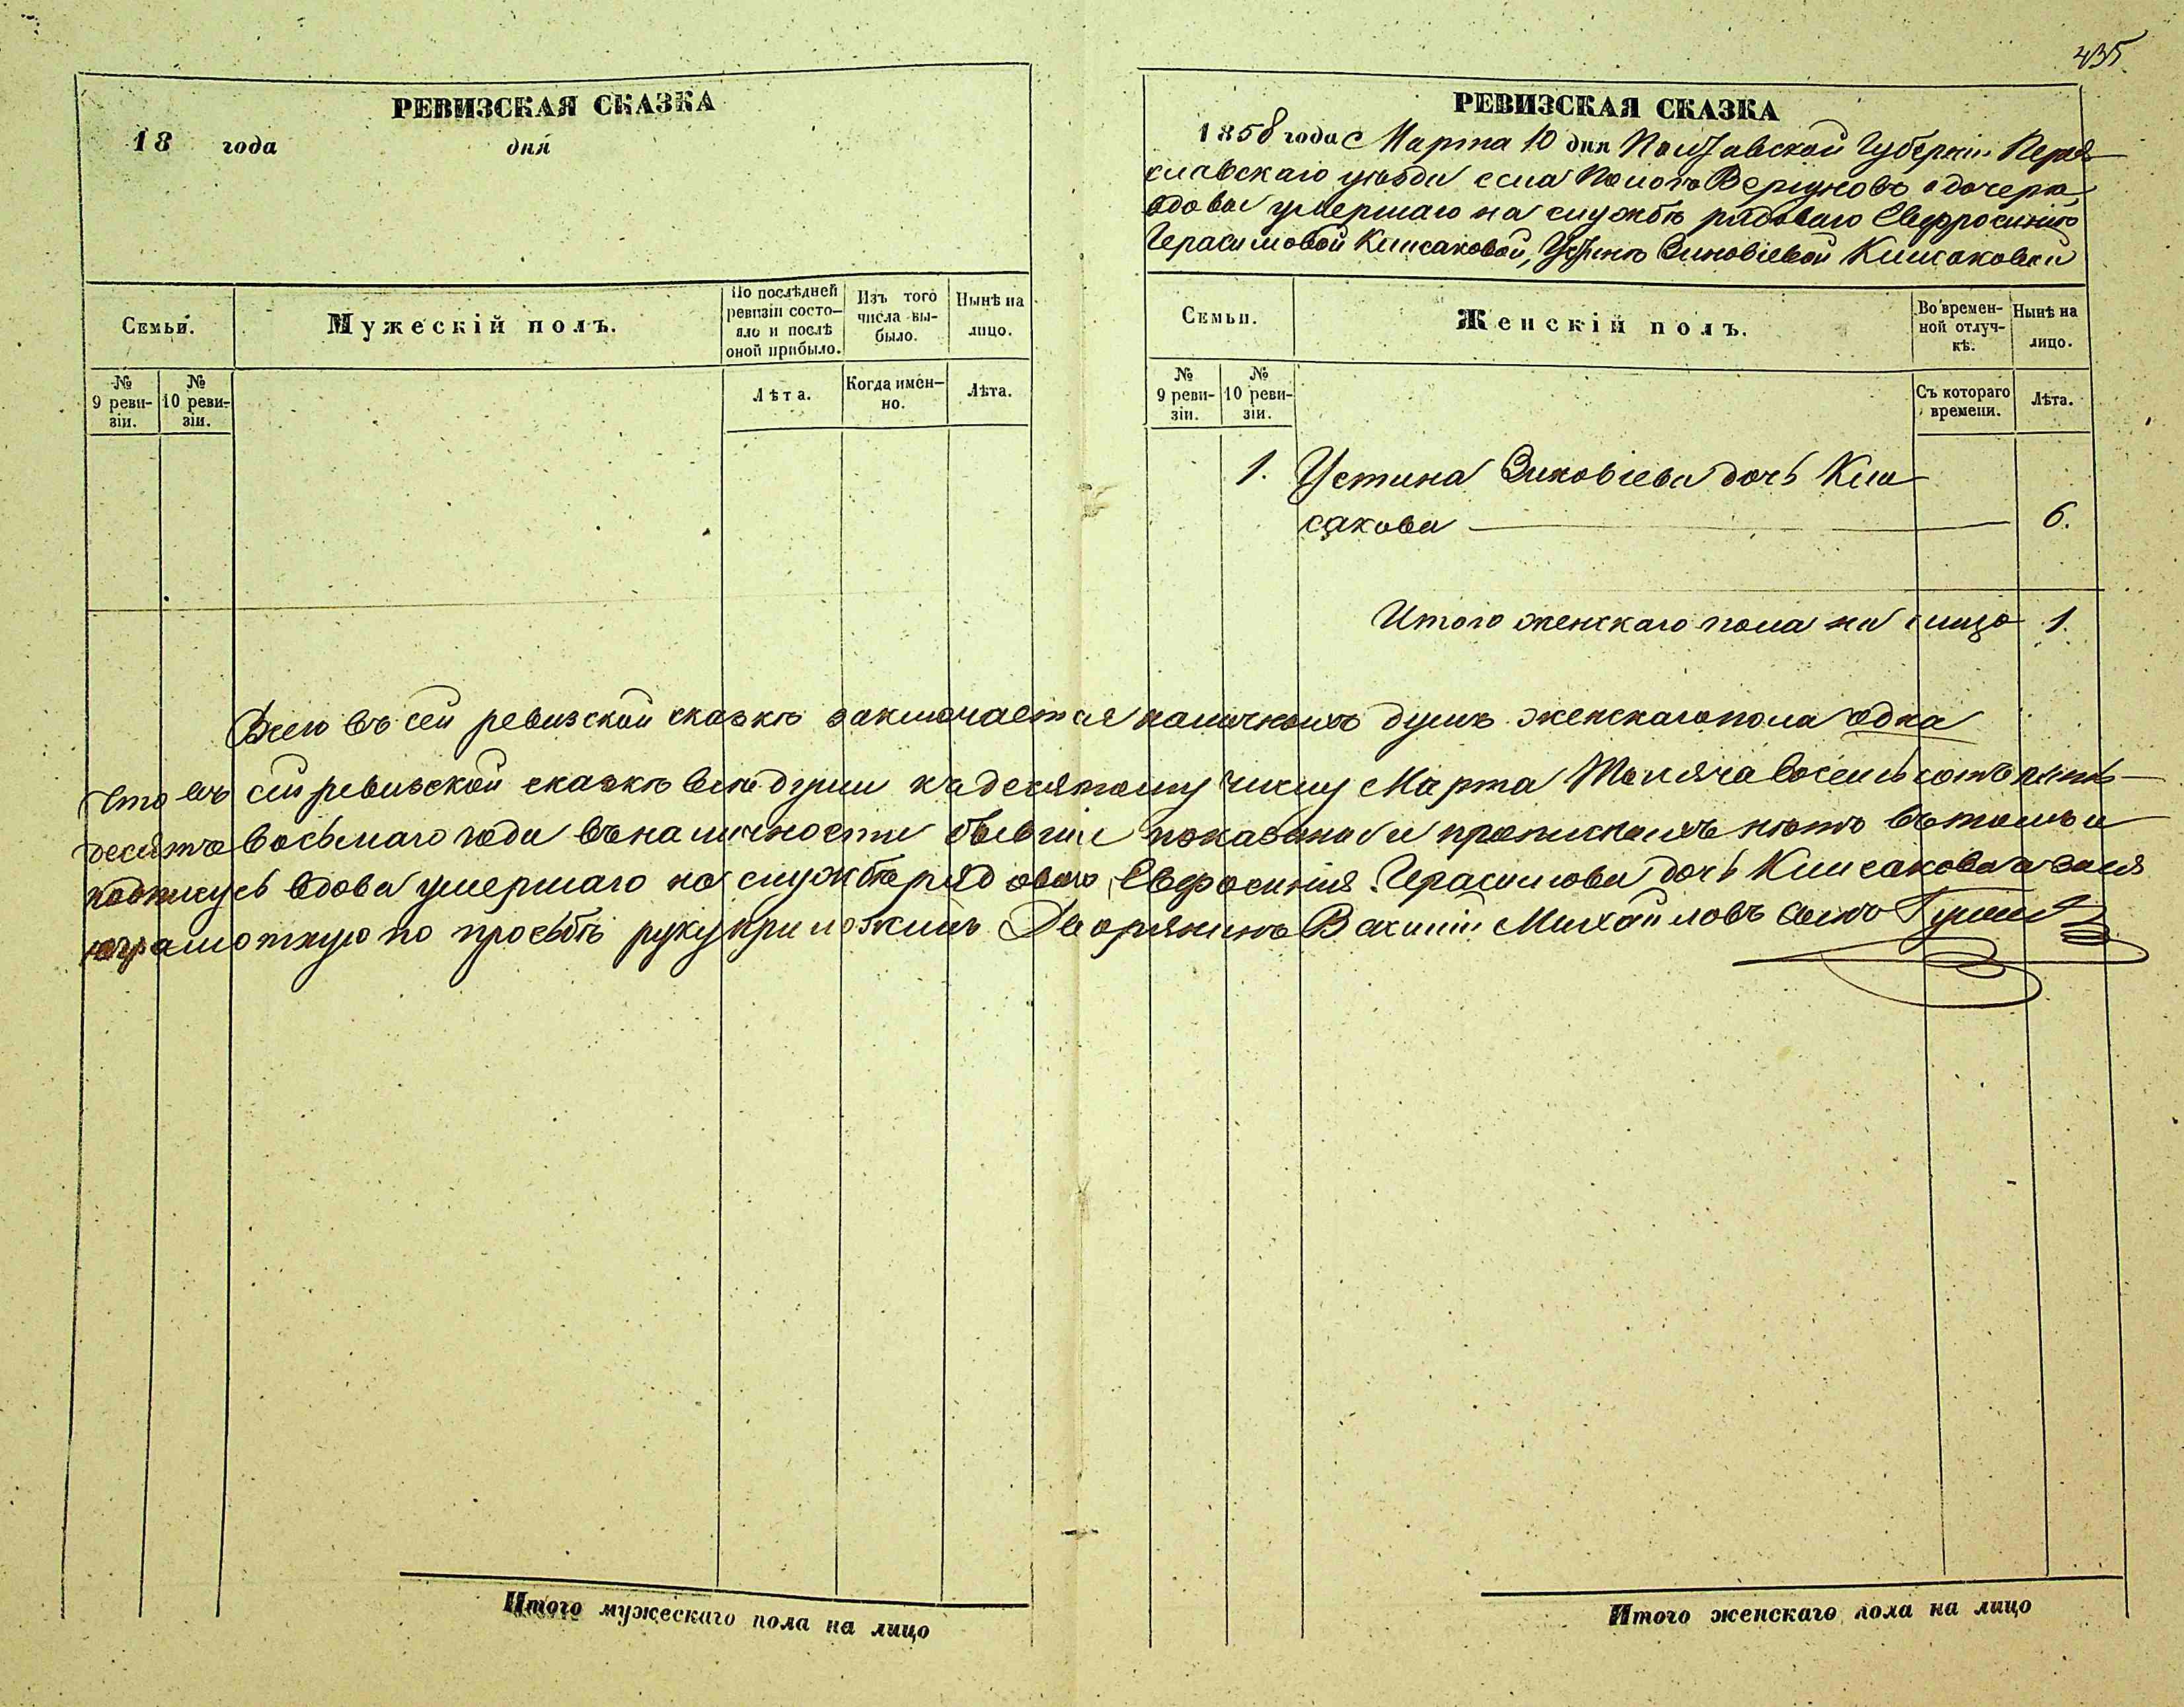 435
РЕВИЗСКАЯ СКАЗКА
18 года дня
Семьи.
Мужескій полъ.
По послѣдней ревизіи состо-
яло и послѣ оной прибыло.
Изъ того числа вы-
было.
Нынѣ на лицо.
№ 9 реви-
зіи.
№ 10 реви-
зіи.
Лѣта.
Когда имен-
но.
Лѣта.
РЕВИЗСКАЯ СКАЗКА
1858 года Марта 10 дня Полтавской Губерніи Перея
славскаго уѣзда села Вергуновъ о дочери
вдовы умершаго на службѣ рядоваго Евфросиніи
Герасимовой Клисаковой, Устинѣ Зиновіевой Клисаковой
Семьи.
Женскій полъ.
Во времен-
ной отлуч-
кѣ.
Нынѣ на лицо.
№ 9 реви-
зіи.
№ 10 реви-
зіи.
Съ котораго времени.
Лѣта.
1. Устина Зиновіева дочь Кли
сакова 6.
Итого женскаго пола на лицо 1.
Всего въ сей ревизской сказкѣ заключается наличныхъ душъ женскаго пола одна
Что въ сей ревизской сказкѣ всѣ души къ десятому числу Марта Тысяча восемь сотъ пять
десятъ восьмаго года въ наличности бывшіе показаны и прописныхъ нѣтъ въ томъ и
подписусь вдова умершаго на службѣ рядоваго Евфросинія Герасимова дочь Клисакова а за нея
неграмотную по просьбѣ руку приложилъ Дворянинъ Михайловъ сынъ
Итого мужескаго пола на лицо
Итого женскаго пола на лицо